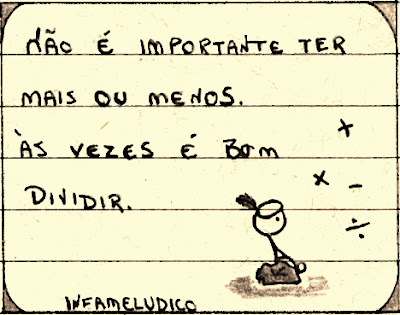 NÃO É IMPORTANTE TER
MAIS OU MENOS.
ÀS VEZES É BOM
DIVIDIR.
+
× -
÷
INFAMELUDICO